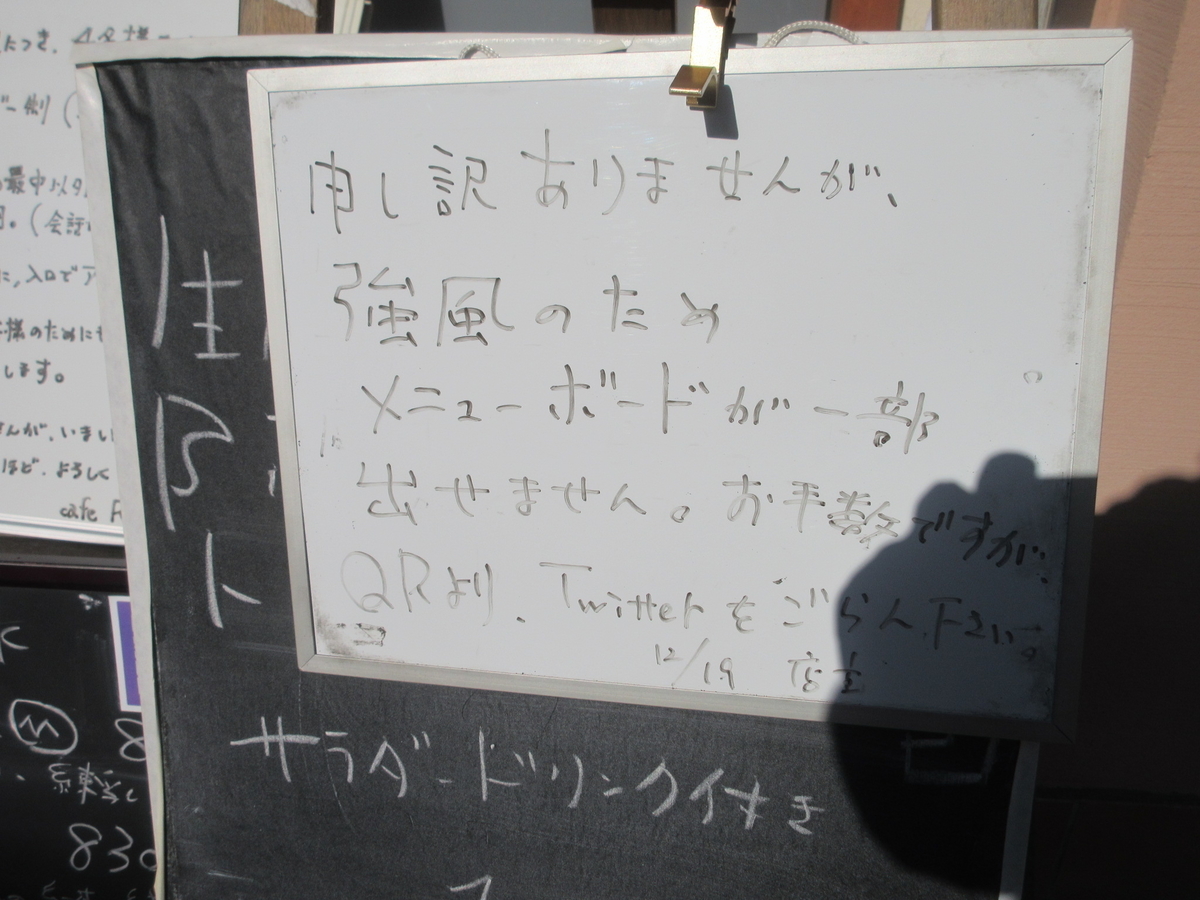 申し訳ありませんが、
強風のため
メニューボードが一部
出せません。お手数ですが、
QRより、Twitterをごらん下さい。
12/19 店主
サラダ・ドリンク付き
生
B
ト
につき、4名様
最中以外
。(会話
に、入口でア
様のためにも
します。
んが、いまし
ほど、よろしく
cafe
830